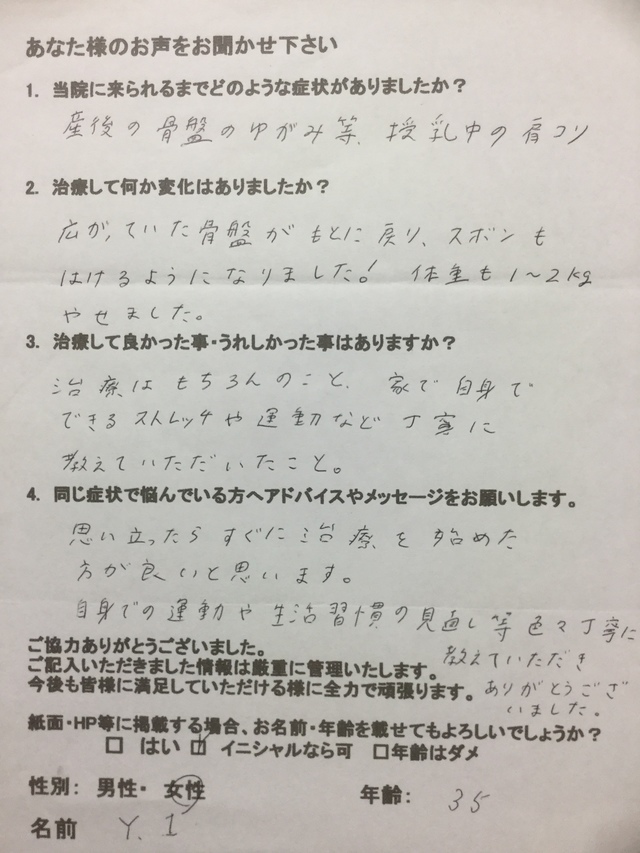 あなた様のお声をお聞かせ下さい
1. 当院に来られるまでどのような症状がありましたか？
産後の骨盤のゆがみ等、授乳中の肩コリ
2. 治療して何か変化はありましたか？
広がっていた骨盤がもとに戻り、ズボンも
はけるようになりました！ 体重も1～2kg
やせました。
3. 治療して良かった事・うれしかった事はありますか？
治療はもちろんのこと、家で自身で
できるストレッチや運動など丁寧に
教えていただいたこと。
4. 同じ症状で悩んでいる方へアドバイスやメッセージをお願いします。
思い立ったらすぐに治療を始めた
方が良いと思います。
自身での運動や生活習慣の見直し等色々丁寧に
教えていただき
ありがとうござ
いました。
ご協力ありがとうございました。
ご記入いただきました情報は厳重に管理いたします。
今後も皆様に満足していただける様に全力で頑張ります。
紙面・HP等に掲載する場合、お名前・年齢を載せてもよろしいでしょうか？
□ はい □ イニシャルなら可 □年齢はダメ
性別： 男性・ 女性 年齢： 35
名前 Y. I